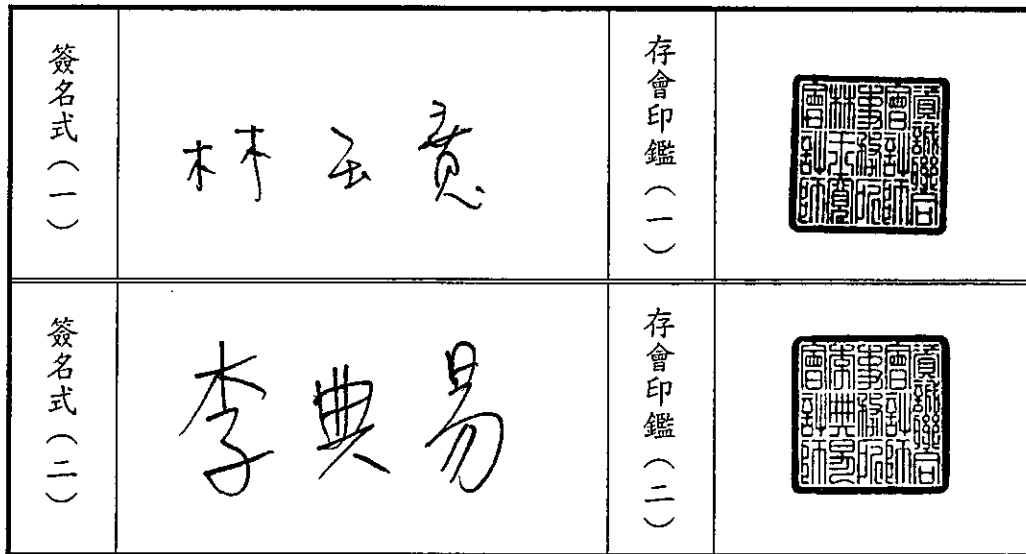 簽名式（一）
林玉寬
存會印鑑（一）
資誠聯合
會計師
事務所
林玉寬
會計師
簽名式（二）
李典易
存會印鑑（二）
資誠聯合
會計師
事務所
李典易
會計師